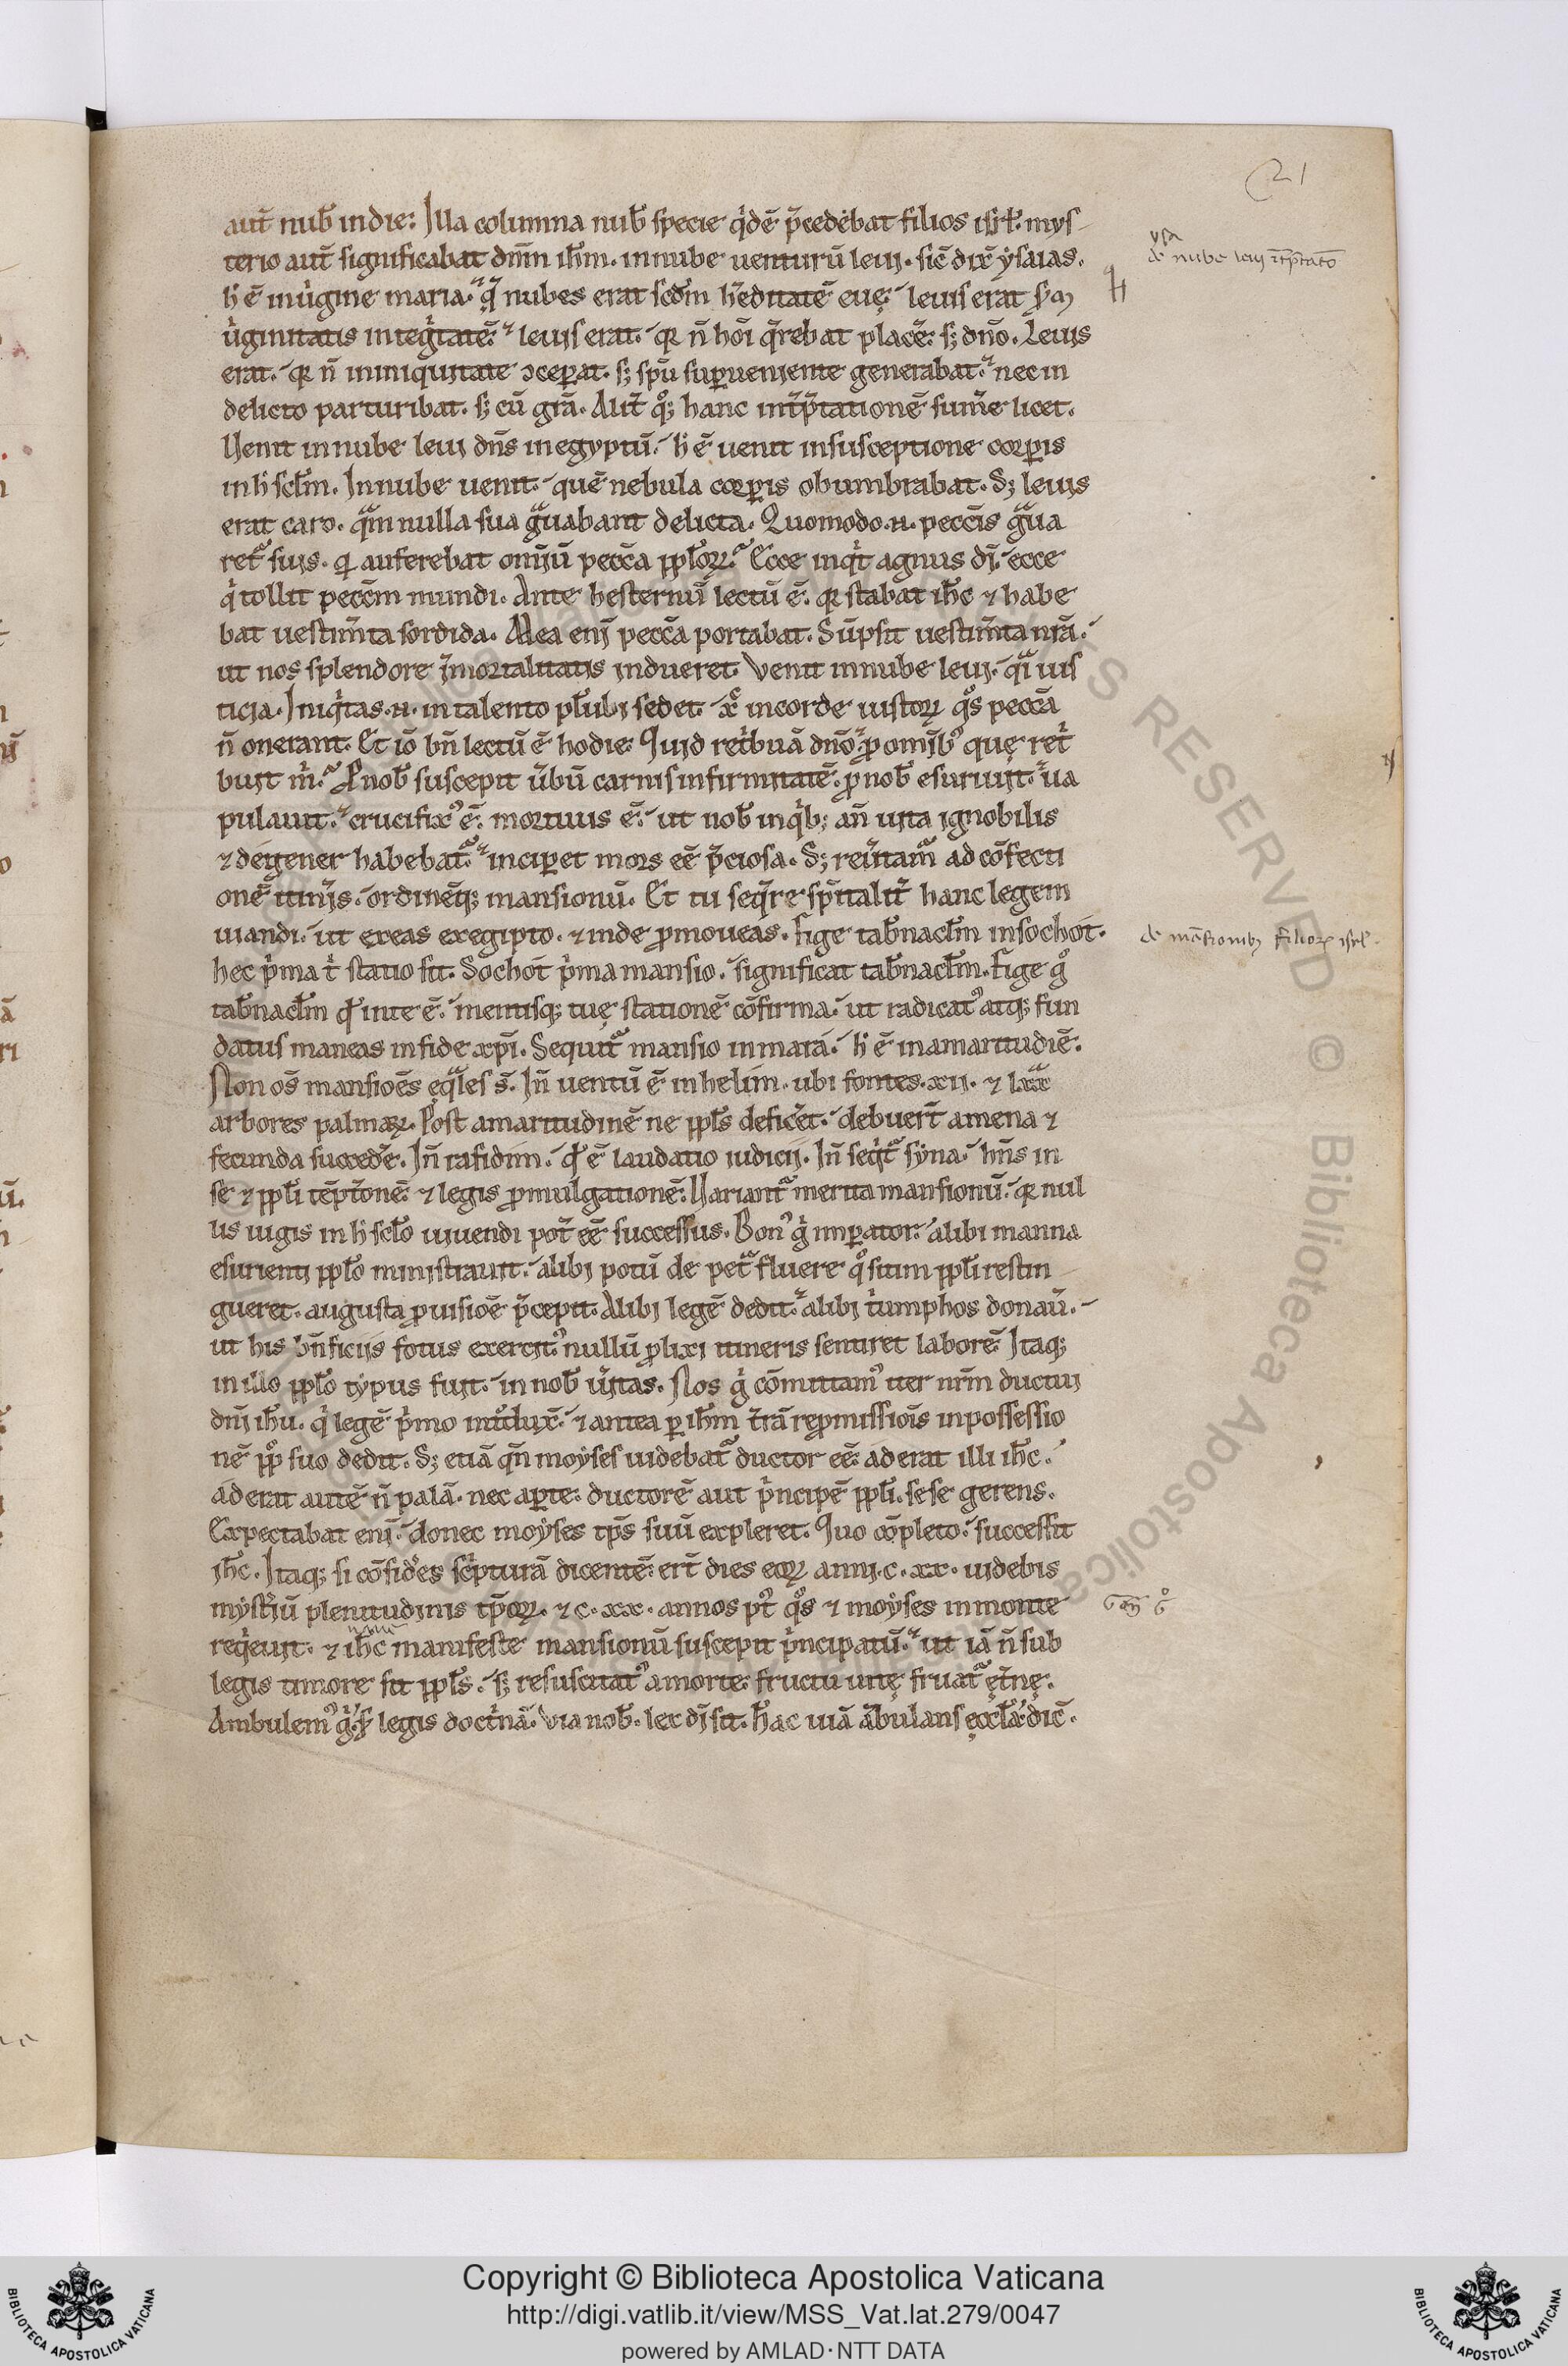 21
aut̄ nub̄ indie: Illa columna nub̄ specie q'dē p̄cedebat filios isrł: mys-
terio aut̄ significabat dn̄m ih̄m. innube uenturū leui. sic̄ dix̄ ysaias.
ysa
de nube leui int̄p̄tatō
h̄ ē inuḡine maria. q̄ nubes erat sc̄dm h̄editatē euę. leuis erat
ūginitatis inteḡtatē. leuis erat. qr n̄ hoī q̄rebat placē. s; dn̄o. Leuis
erat. qr n̄ ininiq̄uitate ɔceꝑat. s; sp̄u suꝑueniente generabat. nec in
delicto parturibat. s; cū gr̄a. Alit̄ qͦ; hanc int̄p̄tationē sum̄e licet.
Uenit innube leui dn̄s inegyptū. h̄ ē uenit insusceptione corꝑis
inh̄ scłm. Innube uenit. quē nebula corꝑis obumbrabat. S; leuis
erat caro. q̄m nulla sua g̃uabant delicta. Quomodo .n. pecc̄is g̃ua
ret̃ suis. qi auferebat om̄iū pecc̄a ppłoꝝ. Ecce inq't agnus dī. ecce
q' tollit pecc̄m mundi. Ante hesternū lectū ē. qr stabat ih̄c ⁊ habe
bat uestim̄ta sordida. Mea enī pecc̄a portabat. Sūpsit uestim̄ta nr̄a.
ut nos splendore īmortalitatis indueret. Venit innube leui. q̄i uis
ticia. Iniq'tas .n. in talento płubi sedet. xͨ incorde iustoꝝ qͦs pecc̄a
n̄ onerant. Et iō bn̄ lectū ē hodie. Quid ret'buā dn̄o ꝓ omīb; quę ret'
buit m'. Ꝓ nob̄ suscepit ūbū carnis infirmitatē. ꝓ nob̄ esuriuit. ua
pulauit. crucifixꝰ ē. mortuus ē. ut nob̄ inq'b; an̄ uita ignobilis
⁊ degener habebat̃. inciꝑet mors eē p̄ciosa. S; reūtam̃ ad cōfecti
onē itin̄is. ordinēq; mansionū. Et tu seq̄re sp̄italit̄ hanc legem
uiandi. ut exeas exegipto. ⁊ inde ꝓmoueas. Fige tab̄nacłm insochot.
de māsionib; filioꝝ isrł.
hec p'ma t' statio sit. Sochot p'ma mansio. significat tab̄nacłm. Fige gͦ
tab̄nacłm qd̄ inte ē. mentisq; tuę stationē cōfirma. ut radicatꝰ atq; fun
datus maneas infide xp̄i. Sequit̃ mansio inmara. h̄ ē inamaritudīe.
Non os̄ mansiōes ęq̄les s̄. In̄ uentū ē inhelim. ubi fontes .xii. ⁊ lxx
arbores palmaꝝ. Post amaritudinē ne ppłs defic̄et. debuer̄t amena ⁊
fecunda succedē. In̄ rafidim. qd̄ ē laudatio iudicii. In̄ seq't̃ syna. hn̄s in
se ⁊ ppłi tēpt̄onē. ⁊ legis ꝓmulgationē. Uariant̃ merita mansionū. qr nul
lis iugis in h̄ scło uiuendi pot̄ eē successus. Bonꝰ g' imꝑator. alibi manna
esurienti ppło ministrauit. alibi potū de pet̃ fluere qͦ sitim ppłi restin
gueret. augusta ꝓuisiōe p̄cepit. Alibi legē dedit. alibi t'umphos donaū.
ut his bn̄ficiis fotus exercitꝰ nullū ꝓlixi itineris sentiret laborē Itaq;
in illo ppło typus fuit. in nob̄ ūitas. Nos g' cōmittamꝰ iter nr̄m ductui
dn̄i ih̄u. q' legē p'mo int̊dux̄. ⁊ antea ꝑ ih̄m t̄rā reꝓmissiōis inpossessio
nē ppͦ suo dedit. S; etiā qn̄ moyses uidebat̃ ductor eē. aderat illi ih̄c.
aderat autē n̄ palā. nec aꝑte. ductorē aut p'ncipē ppłi. sese gerens.
Expectabat enī. donec moyses tp̄s suū expleret. Quo cōpleto. successit
ih̄c. Itaq; si cōsid̄es sc'pturā dicentē. er̄t dies eoꝝ anni .c.xx. uidebis
myst̄iū plenitudinis tp̄oꝝ. ⁊ c.xx. annos ptꝰ qͦs ⁊ moyses inmonte
req̄euit. ⁊ ih̄c manifeste mansionū suscepit p'ncipatū. ut iā n̄ sub
legis timore sit ppłs. s; resuscitatꝰ amorte. fructu uitę fruat̃ ęt̄nę.
Ambulemꝰ g' legis doct'nā. Via nob̄. lex dī sit. Hac uiā ābulans ęccłā dic̄.